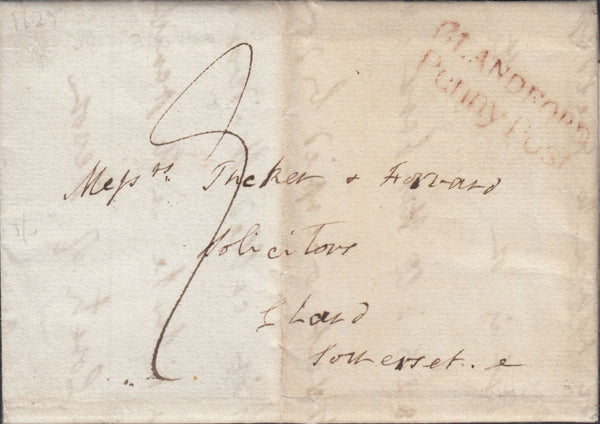 1829
BLANDFORD
Penny Post
Messrs. Tucker & Forward
Solicitors
Chard
Somerset..e